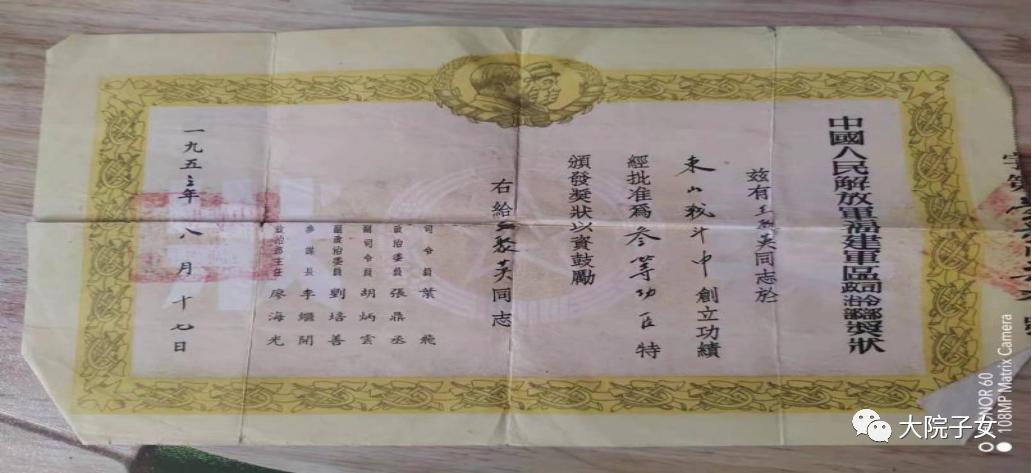 字第
中國人民解放軍福建軍區司令部政治部獎狀
茲有王英同志於
東山戰斗中創立功績
經批准為叁等功臣特
頒發獎狀以資鼓勵
右給王英同志
司令員葉飛
政治委員張鼎丞
副司令員胡炳雲
副政治委員劉培善
參謀長李繼開
政治部主任廖海光
一九五三年八月十七日
HONOR 60
108MP Matrix Camera
大院子女